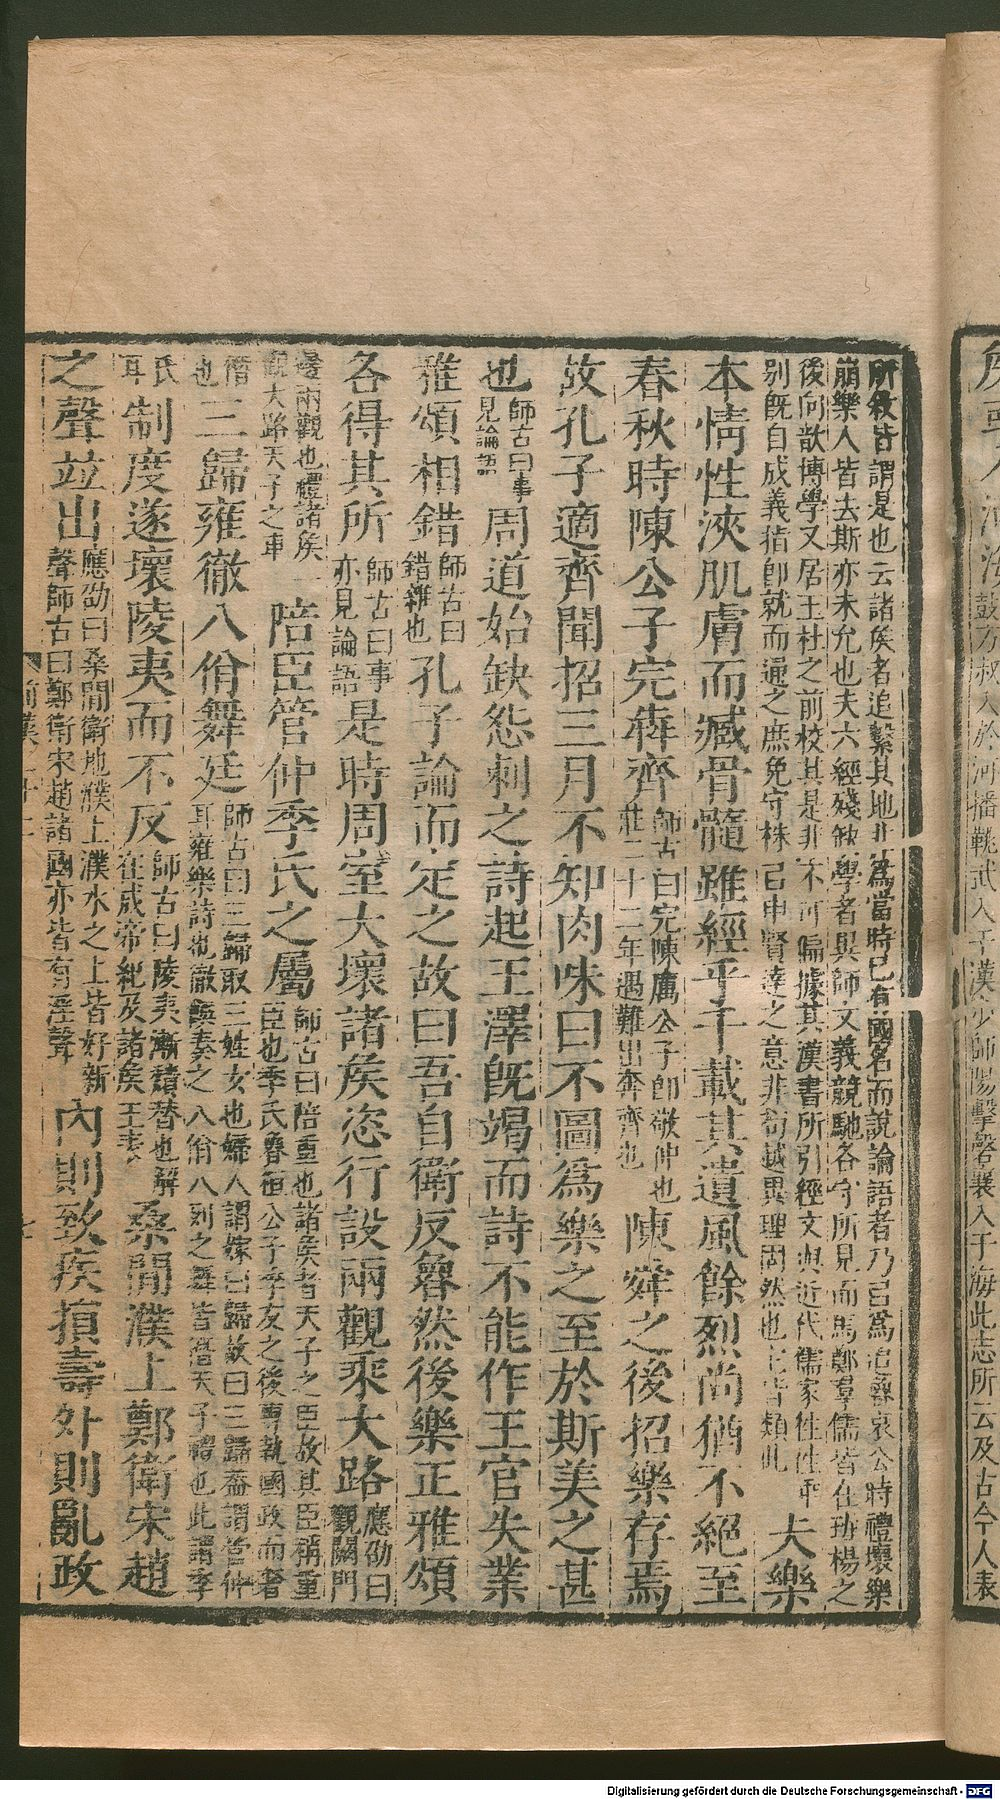 所敘皆謂是也云諸侯者追繫其地非為當時已有國名而說論語者乃以為追繫哀公時禮壞樂
崩樂人皆去斯亦未允也夫六經殘缺學者異師文義競馳各守所見而馬鄭羣儒皆在班楊之
後向歆博學又居王杜之前校其是非不可偏據其漢書所引經文與近代儒家往往乖
別既自成義指即就而通之庶免守株以申賢達之意非苟越異理固然也它皆類此
夫樂
本情性浹肌膚而臧骨髓雖經乎千載其遺風餘烈尚猶不絕至
春秋時陳公子完犇齊師古曰完陳厲公子即敬仲也莊二十二年遇難出奔齊也陳舜之後招樂存焉
故孔子適齊聞招三月不知肉味曰不圖為樂之至於斯美之甚
也師古曰事見論語周道始缺怨刺之詩起王澤既竭而詩不能作王官失業
雅頌相錯師古曰錯雜也孔子論而定之故曰吾自衛反魯然後樂正雅頌
各得其所師古曰事亦見論語是時周室大壞諸侯恣行設兩觀乘大路應劭曰觀闕門
邊兩觀也禮諸侯一觀大路天子之車陪臣管仲季氏之屬師古曰陪重也諸侯者天子之臣故其臣稱重臣也季氏魯桓公子季友之後專執國政而奢
僭也三歸雍徹八佾舞廷師古曰三歸取三姓女也婦人謂嫁曰歸故曰三歸蓋謂管仲耳雍樂詩也徹饌奏之八佾八列之舞皆僭天子禮也此謂季
氏耳制度遂壞陵夷而不反師古曰陵夷漸頹替也解在成帝紀及諸侯王表桑閒濮上鄭衛宋趙
之聲並出應劭曰桑閒衛地濮上濮水之上皆好新聲師古曰鄭衛宋趙諸國亦皆有淫聲內則致疾損壽外則亂政
前漢
鼓方叔入於河播鞉武入于漢少師陽擊磬襄入于海此志所云及古今人表
Digitalisierung gefördert durch die Deutsche Forschungsgemeinschaft - DFG